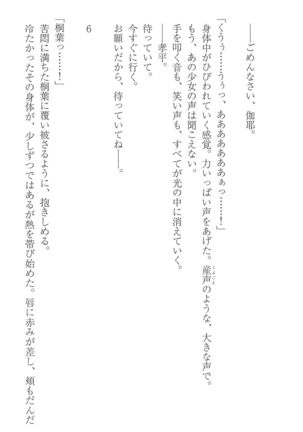 ――ごめんなさい、伽耶。
「くうぅ……うぅっ、ああああああぁっ……！」
身体中がひびわれていく感覚。力いっぱい声をあげた。産声のような、大きな声で。
もう、あの少女の声は聞こえない。
手を叩く音も、笑い声も、すべてが光の中に消えていく。
――孝平。
待っていて。
今すぐに行く。
お願いだから、待っていてね――。
6
「桐葉っ……！」
苦悶に満ちた桐葉に覆い被さるように、抱きしめる。
冷たかったその身体が、少しずつではあるが熱を帯び始めた。唇に赤みが差し、頬もだんだ